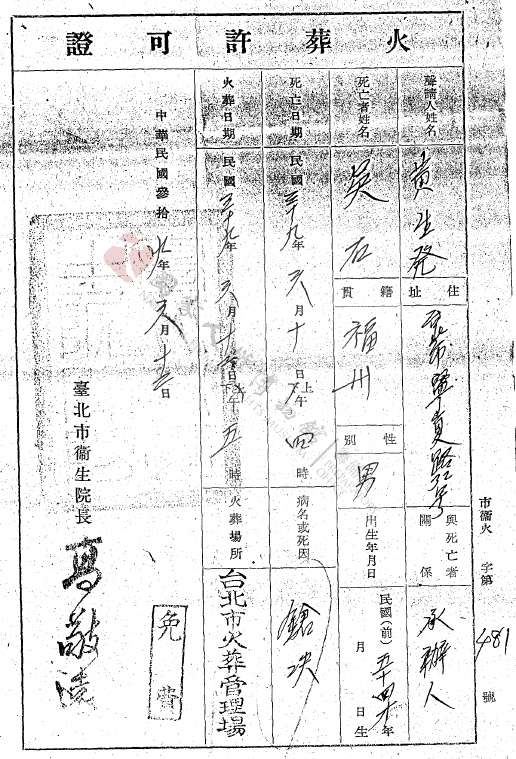 火葬許可證
市衛火字第481號
聲請人姓名 黃生發
住址
與死亡者關係 承辦人
死亡者姓名 吳石
籍貫 福州
性別 男
出生年月日 民國(前)五十四年 月 日生
死亡日期 民國三十九年六月十日下午四時
病名或死因 鎗决
火葬日期 民國三十九年六月 日 午五時
火葬場所 台北市火葬管理場
中華民國參拾九年六月 日
臺北市衞生院長
免費